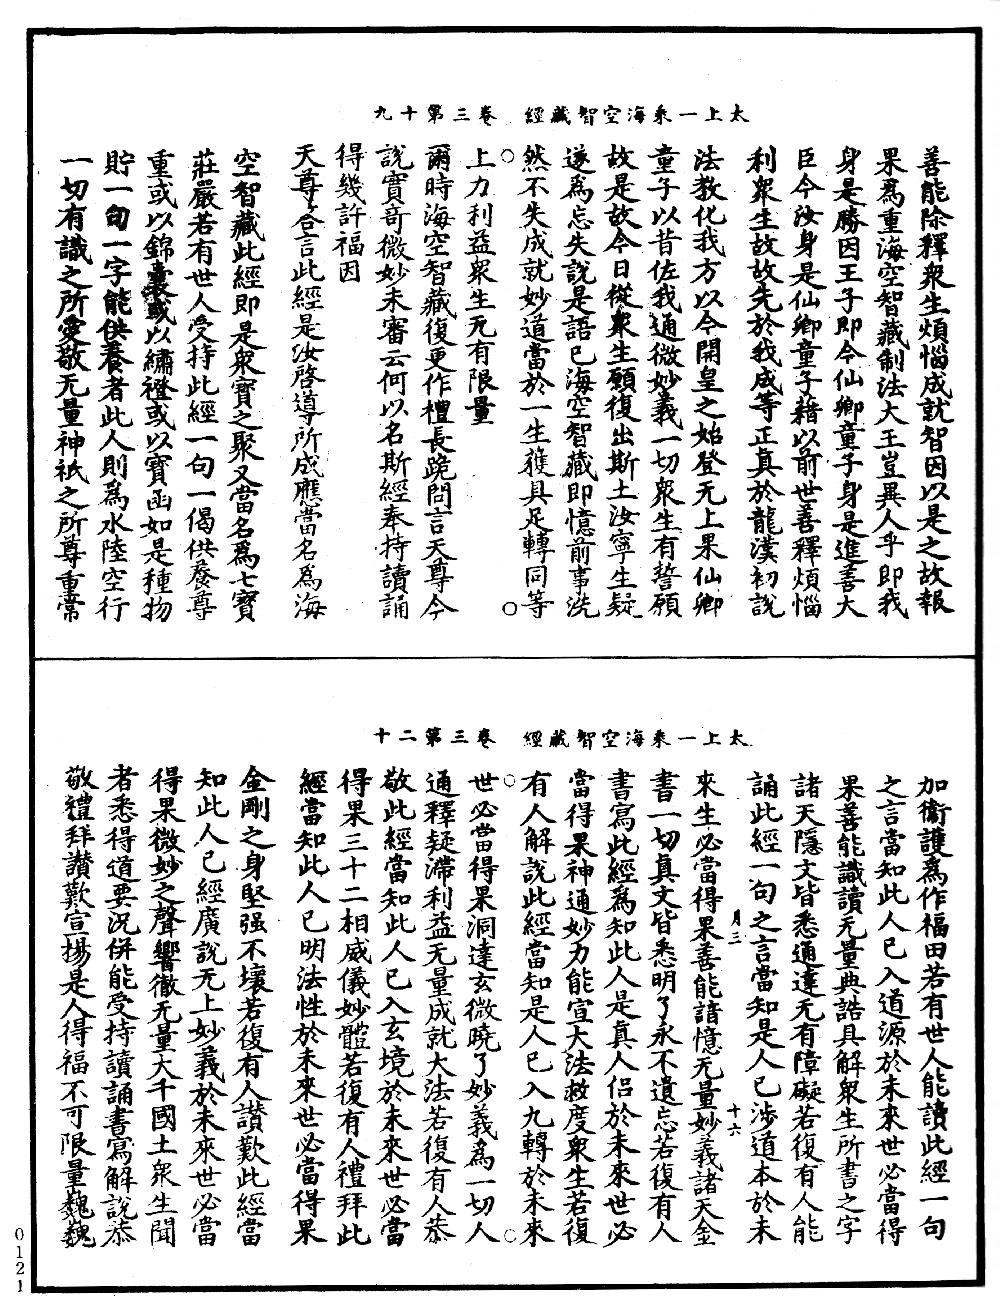 太上一乘海空智藏經　卷三第十九
善能除釋衆生煩惱成就智因以是之故報
果爲重海空智藏制法大王豈異人乎即我
身是勝因王子即今仙卿童子身是進善大
臣今汝身是仙卿童子藉以前世善釋煩惱
利衆生故故先於我成等正真於龍漢初說
法教化我方以今開皇之始登无上果仙卿
童子以昔佐我通微妙義一切衆生有誓願
故是故今日從衆生願復出斯土汝寧生疑
遂爲忘失說是語已海空智藏即憶前事洗
然不失成就妙道當於一生獲具足轉同等
上力利益衆生无有限量
爾時海空智藏復更作禮長跪問言天尊今
說寶奇微妙未審云何以名斯經奉持讀誦
得幾許福因
天尊荅言此經是汝啓導所成應當名爲海
空智藏此經即是衆寶之聚又當名爲七寶
莊嚴若有世人受持此經一句一偈供養尊
重或以錦囊或以繡襆或以寶函如是種物
貯一句一字能供養者此人則爲水陸空行
一切有識之所愛敬无量神祇之所尊重常
太上一乘海空智藏經　卷三第二十
加衞護爲作福田若有世人能讀此經一句
之言當知此人已入道源於未來世必當得
果善能識讀无量典誥具解衆生所書之字
諸天隱文皆悉通達无有障礙若復有人能
誦此經一句之言當知是人已涉道本於未
來生必當得果善能諳憶无量妙義諸天金
月三　十六
書一切真文皆悉明了永不遺忘若復有人
書寫此經爲知此人是真人侶於未來世必
當得果神通妙力能宣大法救度衆生若復
有人解說此經當知是人已入九轉於未來
世必當得果洞達玄微曉了妙義爲一切人
通釋疑滯利益无量成就大法若復有人恭
敬此經當知此人已入玄境於未來世必當
得果三十二相威儀妙體若復有人禮拜此
經當知此人已明法性於未來世必當得果
金剛之身堅强不壞若復有人讃歎此經當
知此人已經廣說无上妙義於未來世必當
得果微妙之聲響徹无量大千國土衆生聞
者悉得道要況併能受持讀誦書寫解說恭
敬禮拜讃歎宣揚是人得福不可限量巍巍
0121